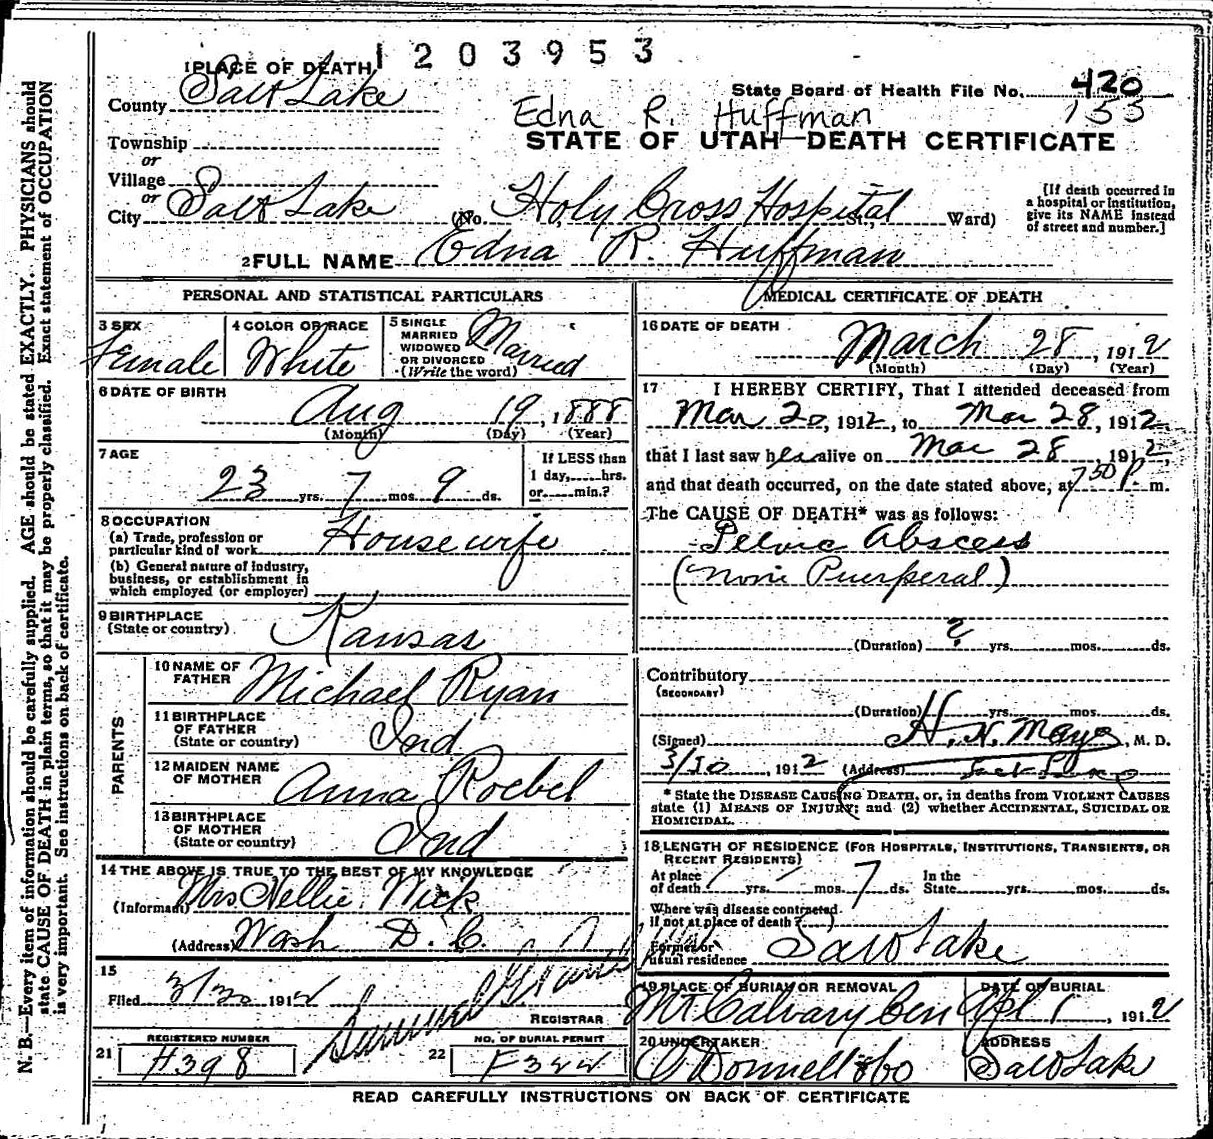 1203953
1 PLACE OF DEATH
County Salt Lake
State Board of Health File No. 420
153
Edna R. Huffman
STATE OF UTAH—DEATH CERTIFICATE
Township
or
Village
or
City Salt Lake (No. Holy Cross Hospital St., Ward)
[If death occurred in a hospital or institution, give its NAME instead of street and number.]
2 FULL NAME Edna R. Huffman
PERSONAL AND STATISTICAL PARTICULARS
3 SEX Female
4 COLOR OR RACE White
5 SINGLE MARRIED WIDOWED OR DIVORCED (Write the word) Married
6 DATE OF BIRTH
Aug 19, 1888
(Month) (Day) (Year)
7 AGE
23 yrs. 7 mos. 9 ds.
If LESS than 1 day, hrs. or min.?
8 OCCUPATION
(a) Trade, profession or particular kind of work Housewife
(b) General nature of industry, business, or establishment in which employed (or employer)
9 BIRTHPLACE
(State or country) Kansas
PARENTS
10 NAME OF FATHER Michael Ryan
11 BIRTHPLACE OF FATHER (State or country) Ind
12 MAIDEN NAME OF MOTHER Anna Roebel
13 BIRTHPLACE OF MOTHER (State or country) Ind
14 THE ABOVE IS TRUE TO THE BEST OF MY KNOWLEDGE
(Informant) Mrs Nellie Wick
(Address) Wash D. C.
15
Filed 3/30 1912
REGISTRAR
21 REGISTERED NUMBER H398
22 NO. OF BURIAL PERMIT
MEDICAL CERTIFICATE OF DEATH
16 DATE OF DEATH
March 28, 1912
(Month) (Day) (Year)
17 I HEREBY CERTIFY, That I attended deceased from
Mar 20, 1912, to Mar 28, 1912,
that I last saw her alive on Mar 28, 1912,
and that death occurred, on the date stated above, at 750 P. m.
The CAUSE OF DEATH* was as follows:
Pelvic Abscess
(non Puerperal)
(Duration) ? yrs. mos. ds.
Contributory
(SECONDARY)
(Duration) yrs. mos. ds.
(Signed) H. N. Mayo, M. D.
3/30, 1912 (Address)
* State the DISEASE CAUSING DEATH, or, in deaths from VIOLENT CAUSES
state (1) MEANS OF INJURY; and (2) whether ACCIDENTAL, SUICIDAL OR
HOMICIDAL.
18 LENGTH OF RESIDENCE (FOR HOSPITALS, INSTITUTIONS, TRANSIENTS, OR
RECENT RESIDENTS)
At place of death yrs. mos. 7 ds. In the State yrs. mos. ds.
Where was disease contracted
if not at place of death?
Former or
usual residence Salt Lake
19 PLACE OF BURIAL OR REMOVAL Mt Calvary Cem
DATE OF BURIAL Apl 1, 1912
20 UNDERTAKER O'Donnell & Co
ADDRESS Salt Lake
READ CAREFULLY INSTRUCTIONS ON BACK OF CERTIFICATE
N. B.—Every item of information should be carefully supplied. AGE should be stated EXACTLY. PHYSICIANS should
state CAUSE OF DEATH in plain terms, so that it may be properly classified. Exact statement of OCCUPATION
is very important. See instructions on back of certificate.